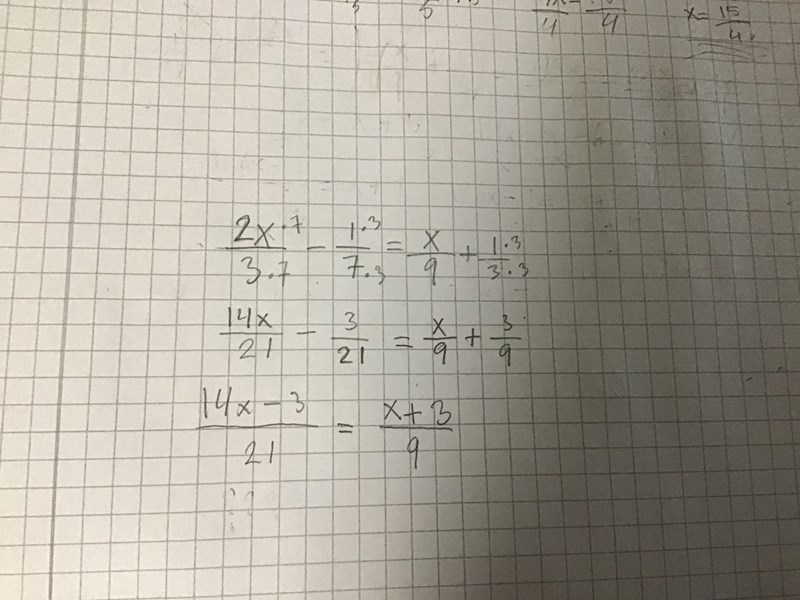 x = 15/4
2x·7/3·7 − 1·3/7·3 = x/9 + 1·3/3·3
14x/21 − 3/21 = x/9 + 3/9
14x − 3/21 = x + 3/9